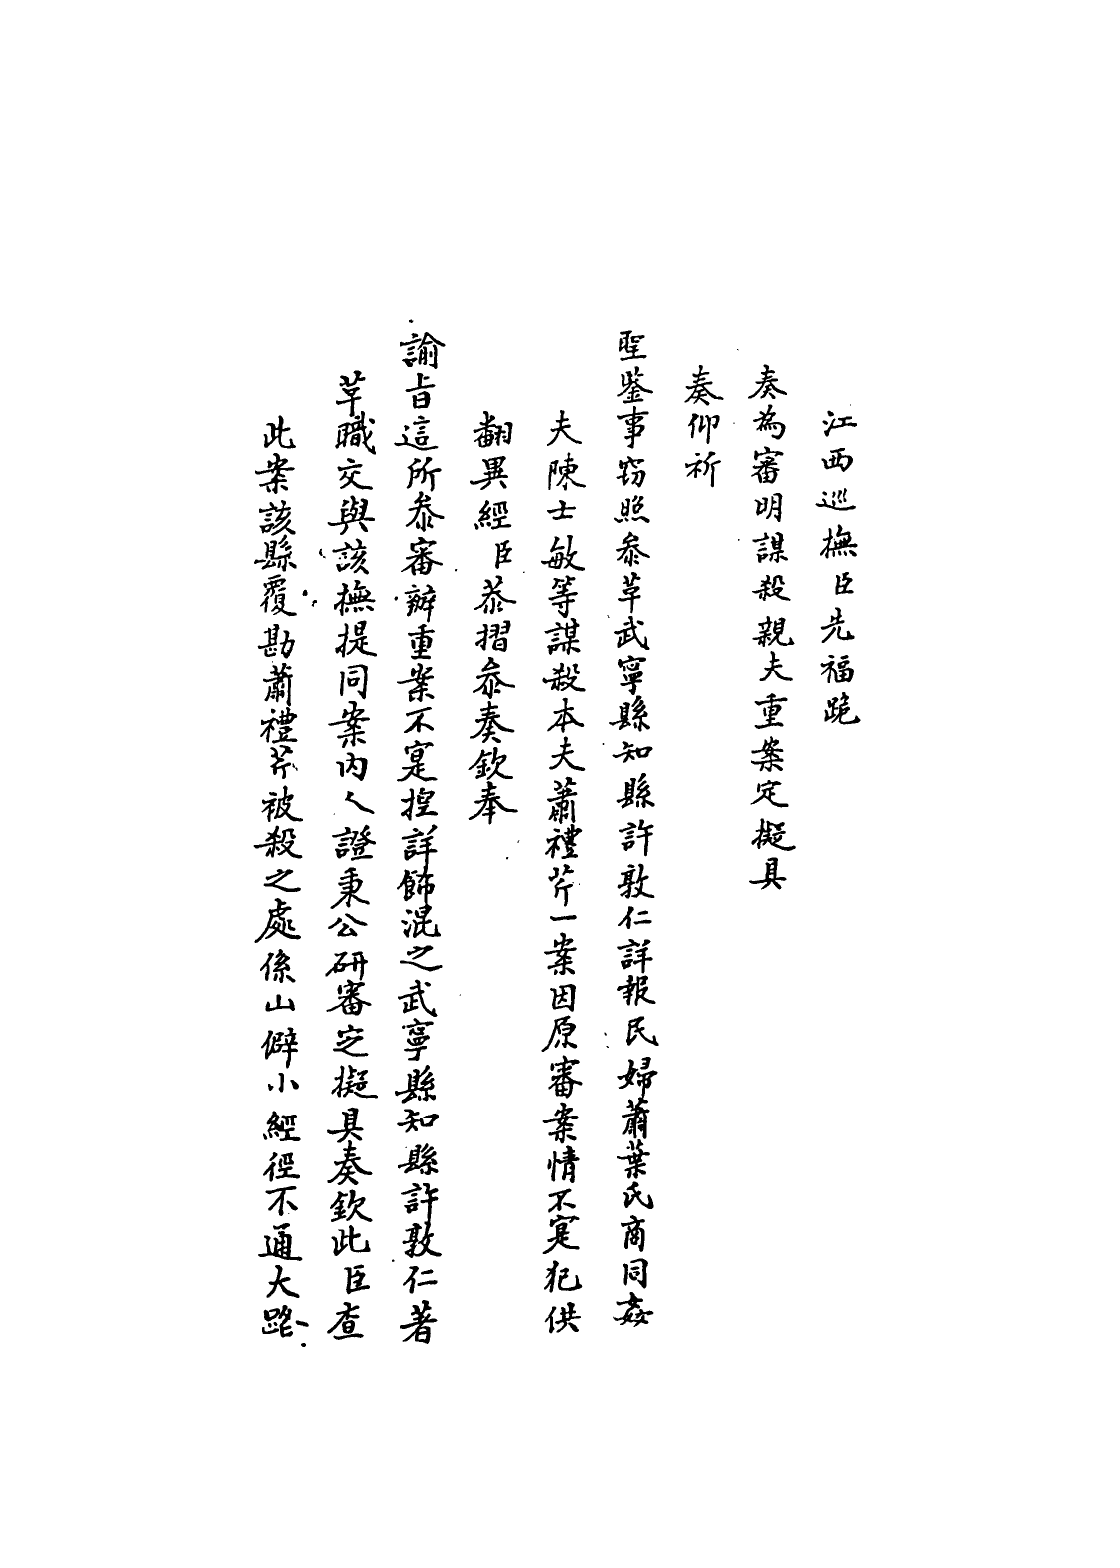 江西巡撫臣先福跪
奏為審明謀殺親夫重案定擬具
奏仰祈
聖鉴事窃照叅革武寧縣知縣許敦仁詳報民婦蕭葉氏商同姦
夫陳士敏等謀殺本夫蕭禮芹一案因原審案情不寔犯供
翻異經臣恭摺叅奏欽奉
諭旨這所叅審辦重案不寔揑詳飾混之武寧縣知縣許敦仁著
革職交與該撫提同案內人證秉公研審定擬具奏欽此臣查
此案該縣覆勘蕭禮芹被殺之處係山僻小經徑不通大路